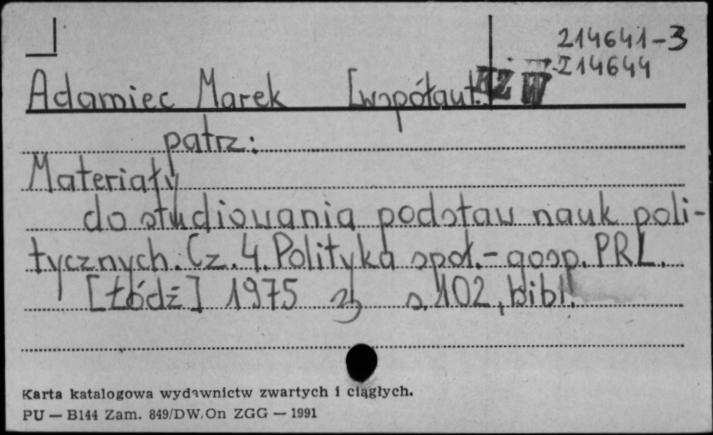 214641-3
214644
Adamiec Marek [współaut.]
KZ W
patrz:
Materiały
do studiowania podstaw nauk poli-
tycznych. Cz. 4. Polityka społ.-gosp. PRL.
[Łódź] 1975 s. 102, bibl.
Karta katalogowa wydawnictw zwartych i ciągłych.
PU — B144 Zam. 849/DW.On ZGG — 1991